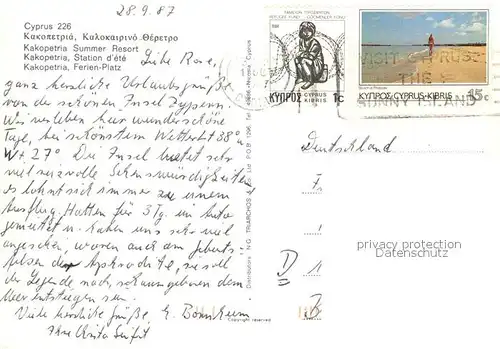 28.9.87
Cyprus 226
Κακοπετριά, Καλοκαιρινό Θέρετρο
Kakopetria Summer Resort
Kakopetria, Station d'été
Kakopetria, Ferien-Platz
Liebe Rose,
ganz herzliche Urlaubsgrüße
von der schönen Insel Zypern.
Wir verleben hier wunderschöne
Tage, bei schönstem Wetter 38°
W+ 27°. Die Insel bietet sehr
viel reizvolle Sehenswürdigkeiten
es lohnt sich immer zu einem
Ausflug. Hatten für 3 Tg. ein Auto
gemietet u. haben uns sehr viel
angesehen, waren auch am Geburts-
felsen der Aphrodite, sie soll
der Legende nach, schaumgeboren dem
Meer entstiegen sein.
Viele herzliche Grüße E. Bornheim
Ihre Anita Seifit
Distributors N.G. TRIARCHOS Ltd. P.O.B. Nicosia-Cyprus
Copyright reserved
REFUGEE FUND
1c
ΚΥΠΡΟΣ CYPRUS KIBRIS
ΚΥΠΡΟΣ-CYPRUS-KIBRIS 15c
VISIT CYPRUS
THE
SUNNY ISLAND
Deutschland
privacy protection
Datenschutz
D